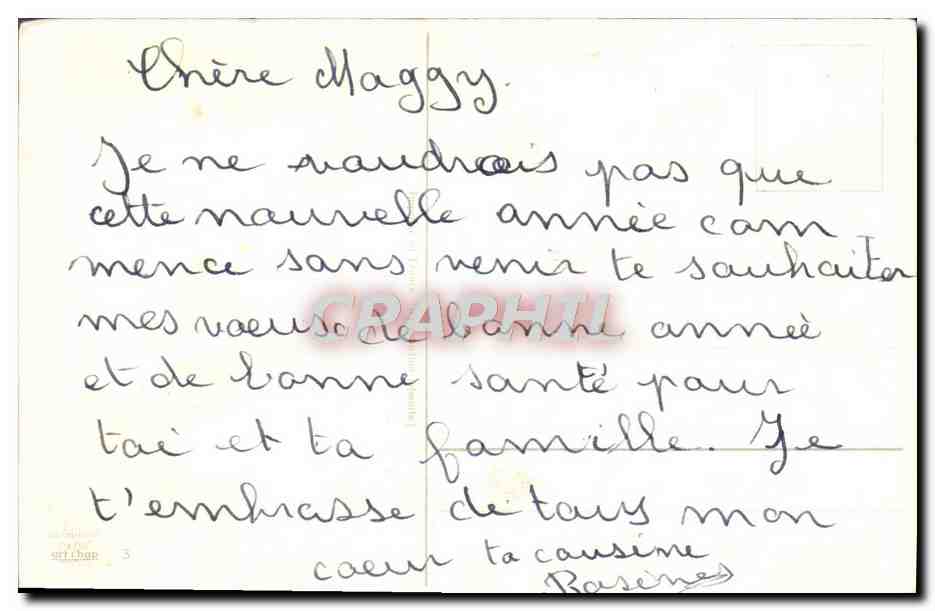 Chère Maggy.
Je ne voudrais pas que
cette nouvelle année com
mence sans venir te souhaiter
mes voeux de bonne année
et de bonne santé pour
toi et ta famille. Je
t'embrasse de tous mon
coeur ta cousine
CRAPHIL
art chap 3